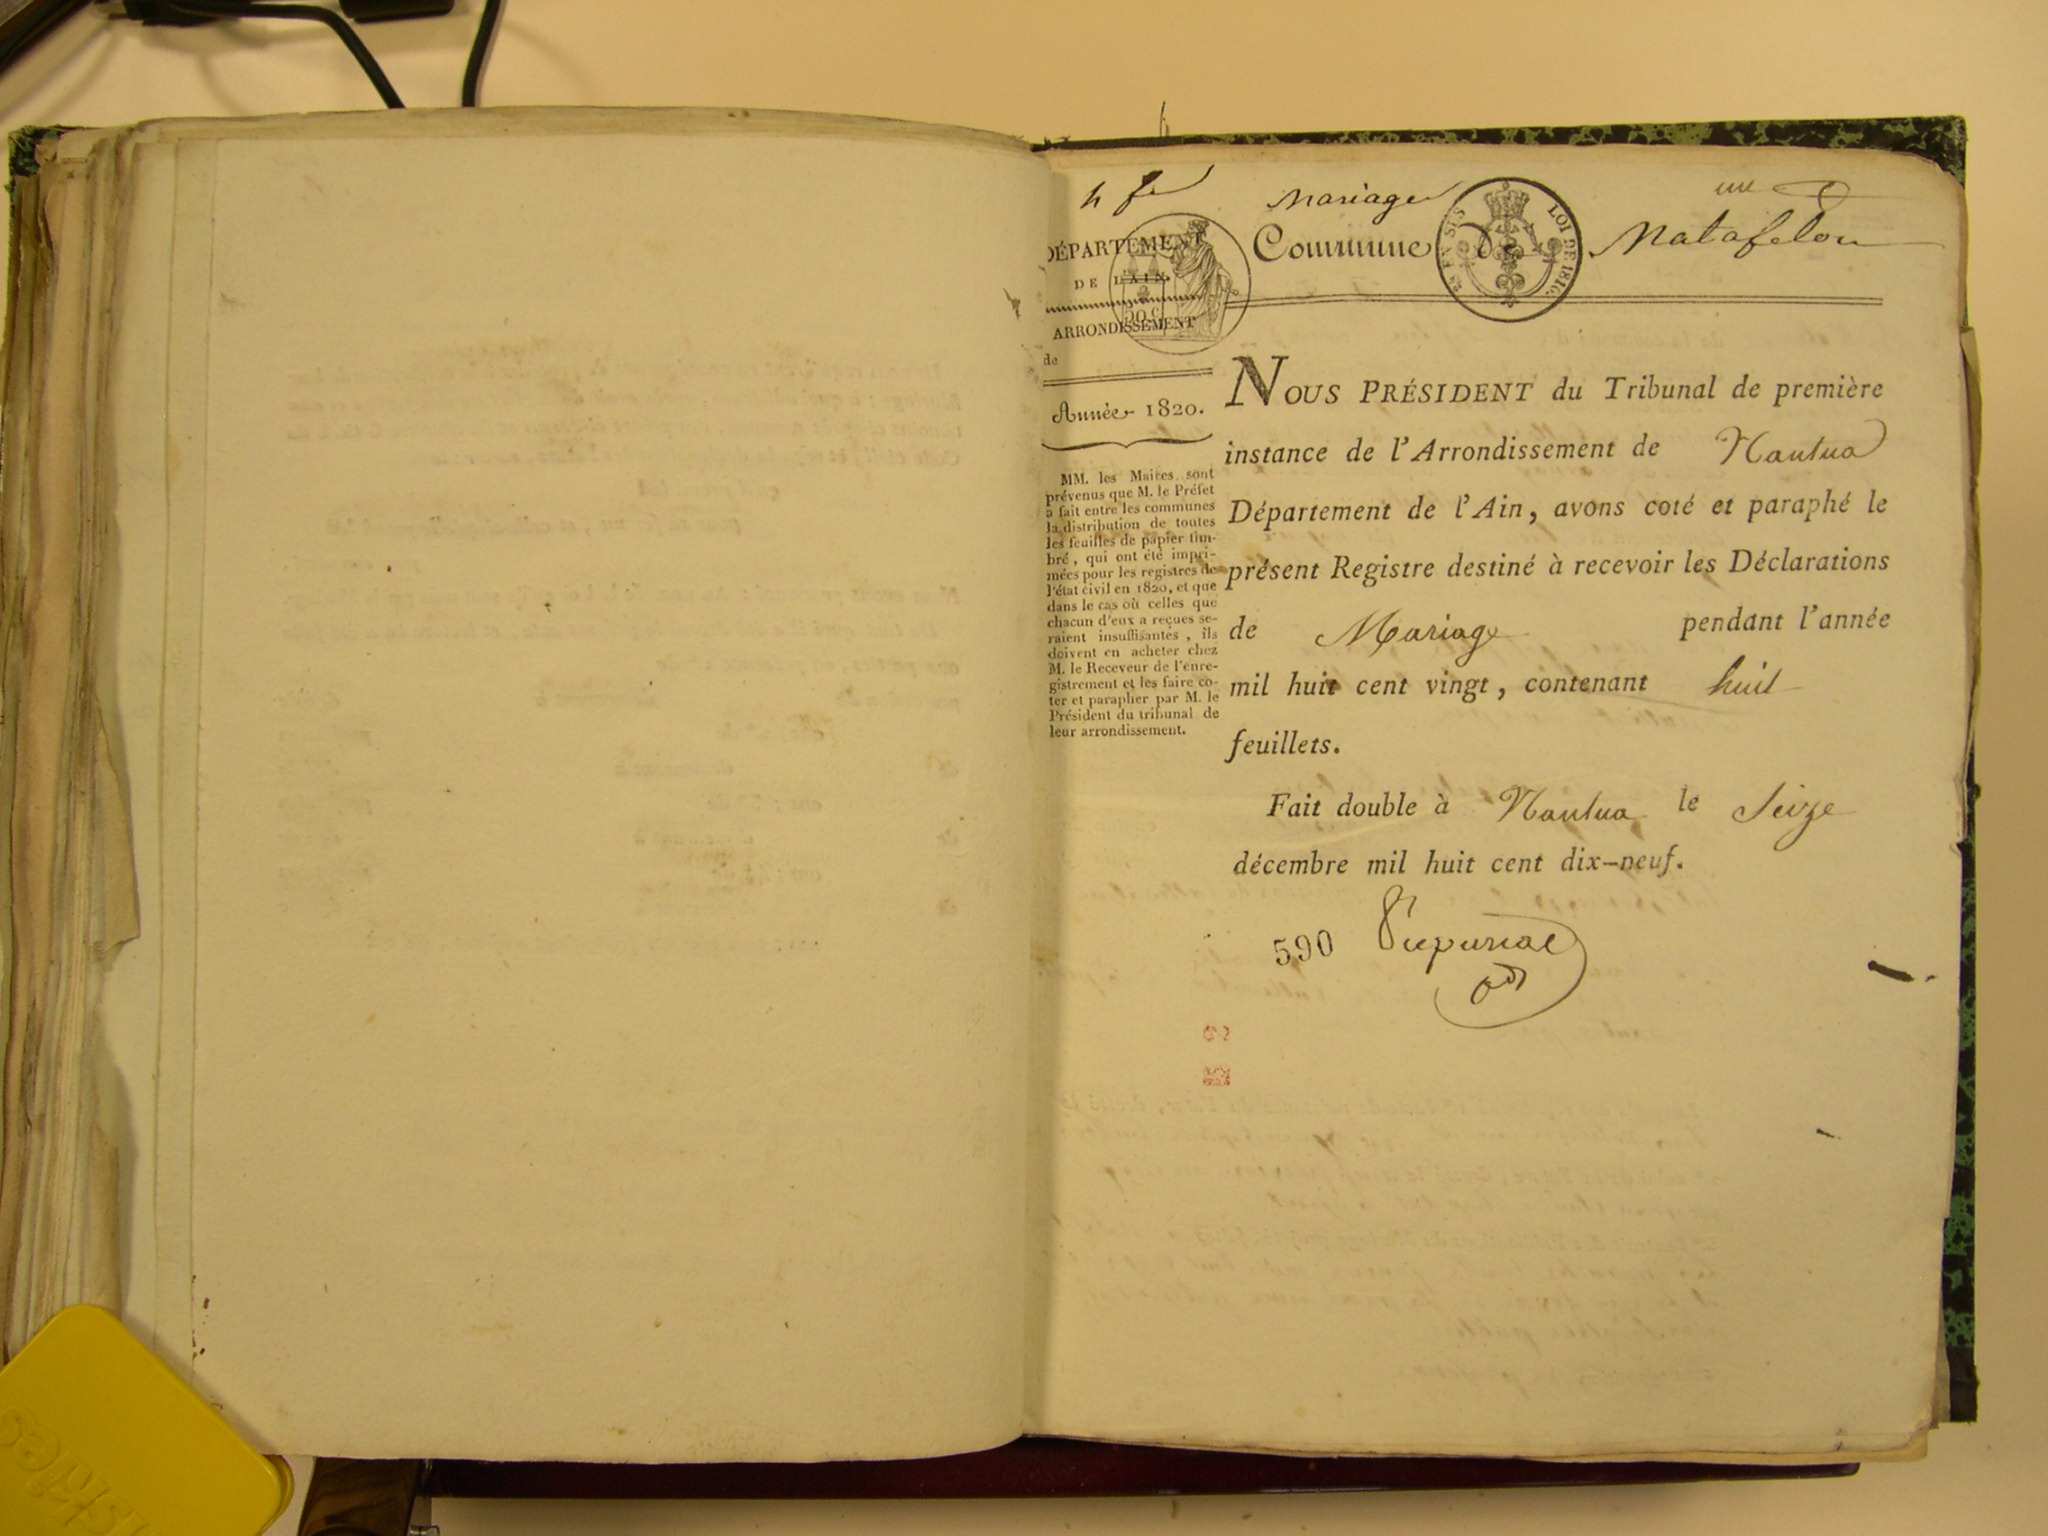 Mariage
Commune de Matafelon
DÉPARTEMENT
DE L'AIN.
2 EN SUS LOI DE 1816.
50 C
ARRONDISSEMENT
de
Année 1820.
MM. les Maires sont
prévenus que M. le Préfet
a fait entre les communes
la distribution de toutes
les feuilles de papier tim-
bré, qui ont été impri-
mées pour les registres de
l'état civil en 1820, et que
dans le cas où celles que
chacun d'eux a reçues se-
raient insuffisantes, ils
doivent en acheter chez
M. le Receveur de l'enre-
gistrement et les faire co-
ter et parapher par M. le
Président du tribunal de
leur arrondissement.
NOUS PRÉSIDENT du Tribunal de première
instance de l'Arrondissement de Nantua
Département de l'Ain, avons coté et paraphé le
présent Registre destiné à recevoir les Déclarations
de Mariage pendant l'année
mil huit cent vingt, contenant huit
feuillets.
Fait double à Nantua le Seize
décembre mil huit cent dix-neuf.
590